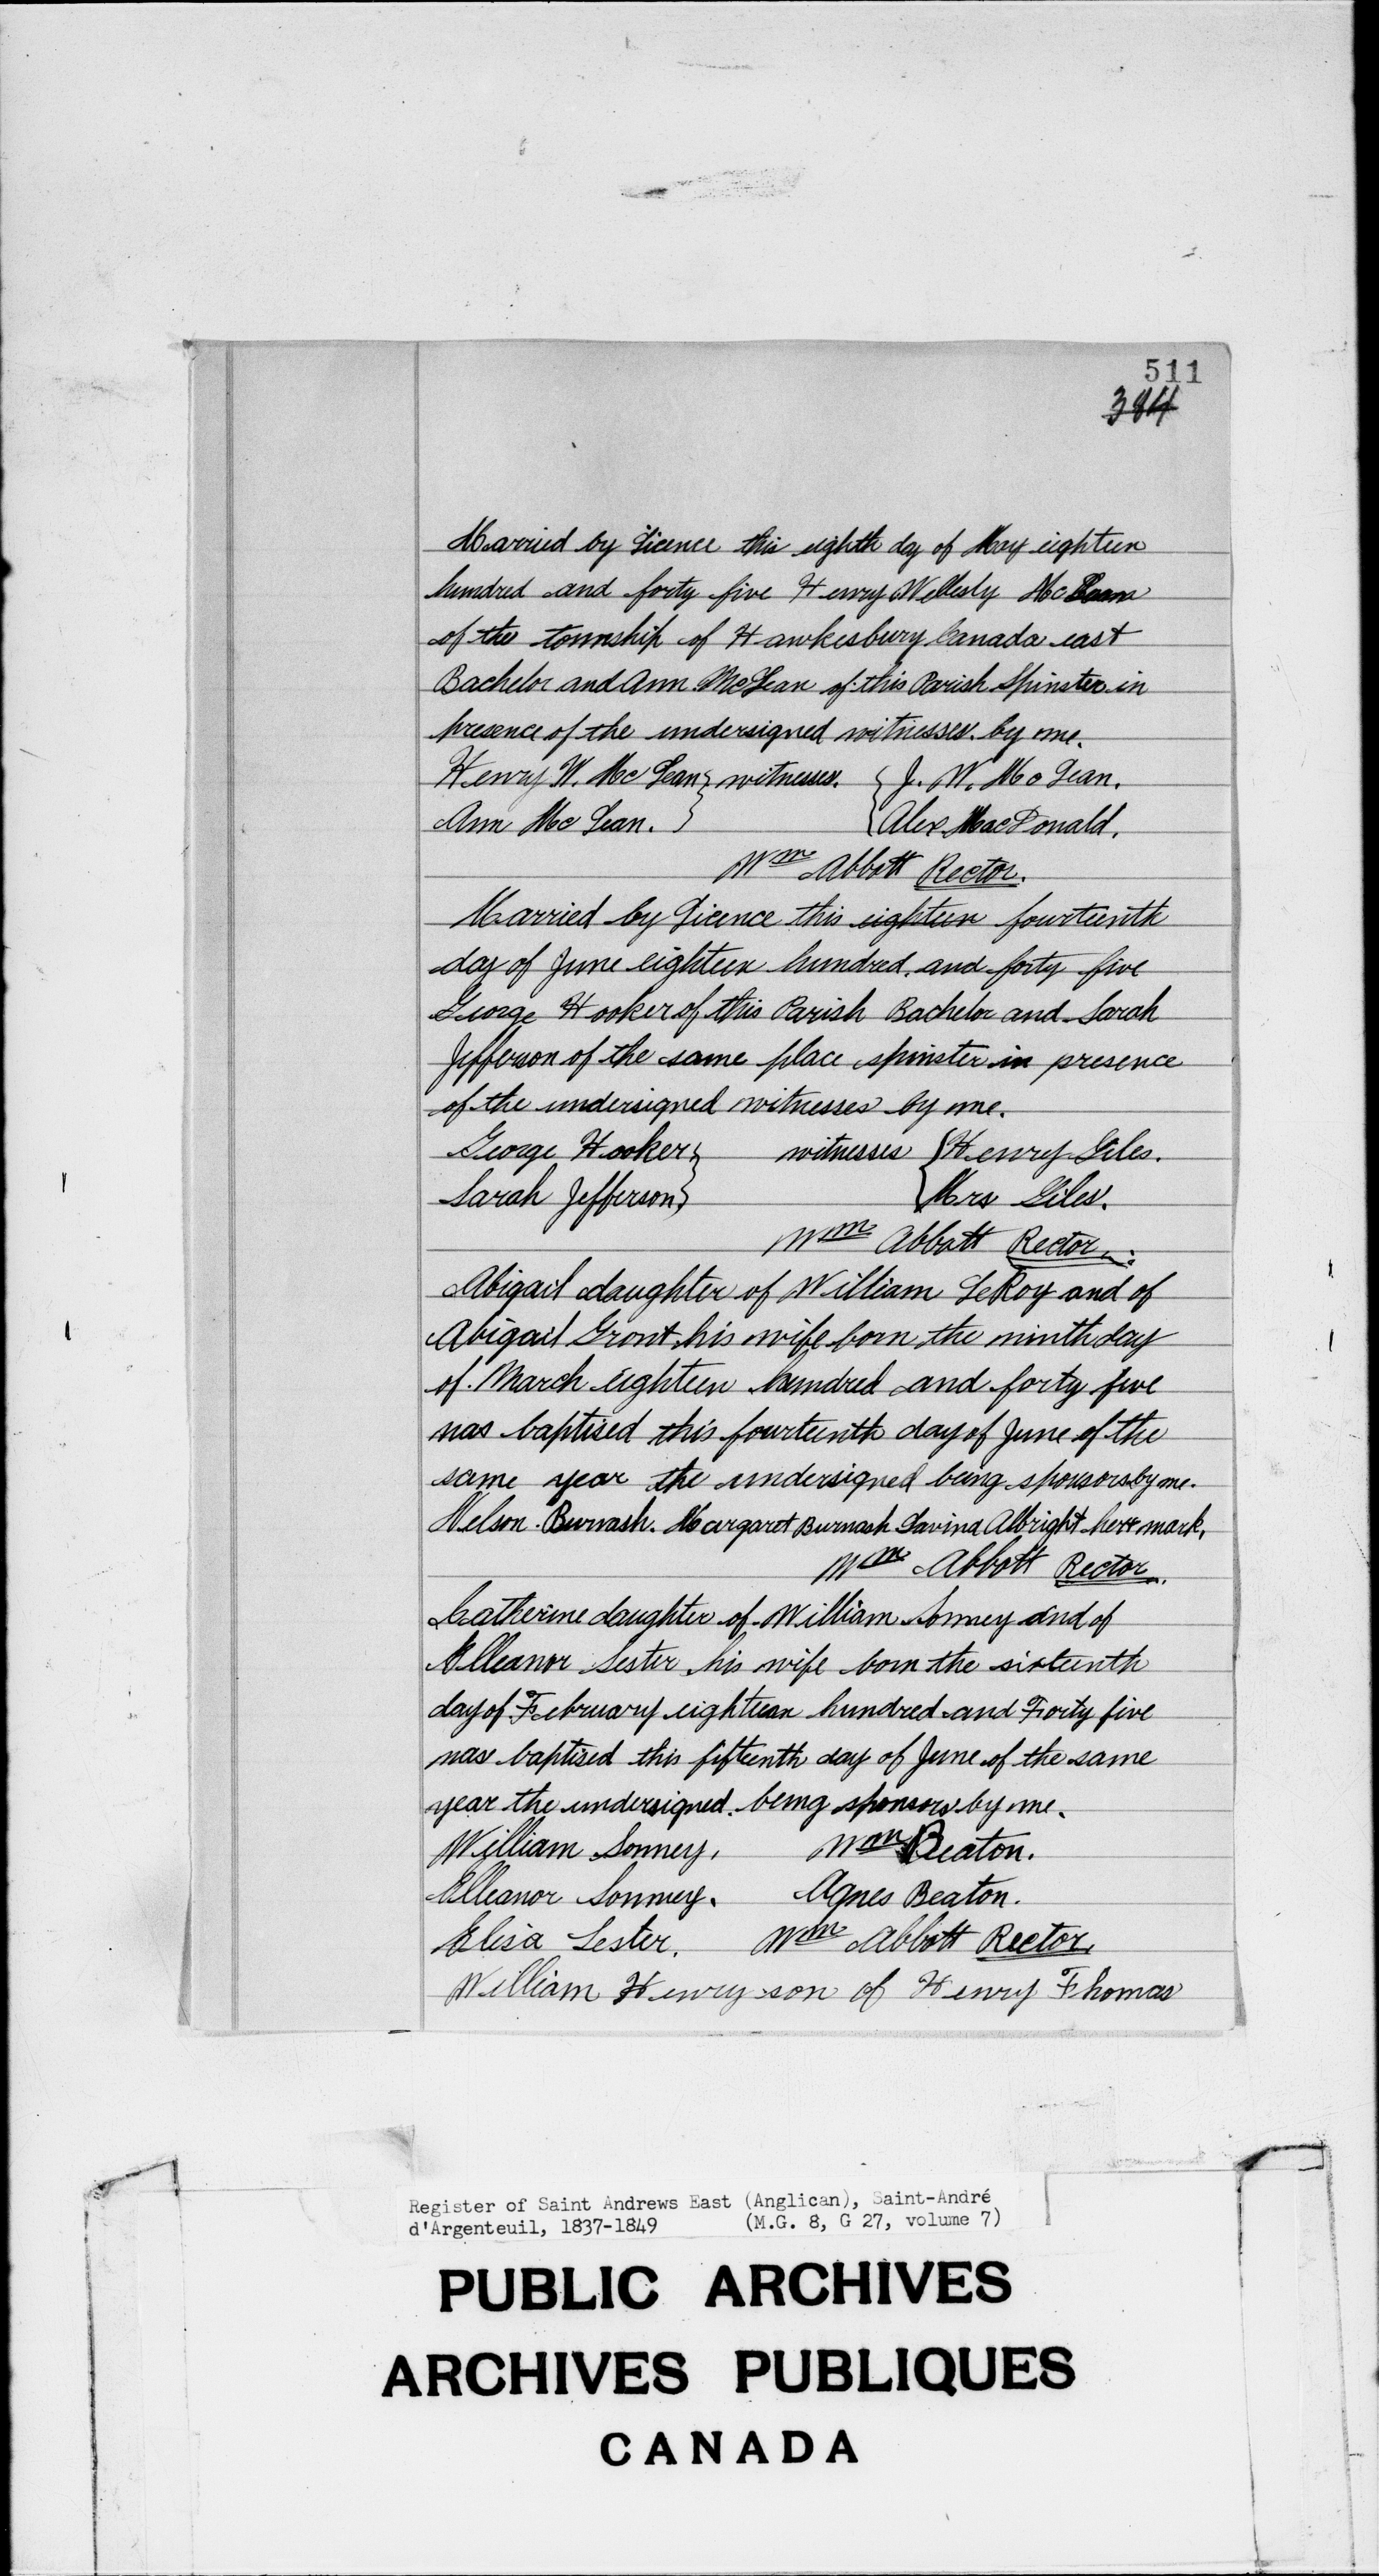 511
384
Married by Licence this eighth day of May eighteen
hundred and forty five Henry Wellesly McLean
of the township of Hawkesbury Canada east
Bachelor and Ann McLean of this Parish Spinster in
presence of the undersigned witnesses by me.
Henry W. McLean } witnesses. { J. W. McLean.
Ann McLean. } { Alex MacDonald.
Wm Abbott Rector.
Married by Licence this eighteen fourteenth
day of June eighteen hundred and forty five
George Hooker of this Parish Bachelor and Sarah
Jefferson of the same place spinster in presence
of the undersigned witnesses by me.
George Hooker } witnesses { Henry Giles.
Sarah Jefferson } { Mrs Giles.
Wm Abbott Rector.
Abigail daughter of William LeRoy and of
Abigail Gront his wife born the ninth day
of March eighteen hundred and forty five
was baptised this fourteenth day of June of the
same year the undersigned being sponsors by me.
Nelson Burwash. Margaret Burwash Lavina Albright her x mark.
Wm Abbott Rector.
Catherine daughter of William Sonney and of
Elleanor Lester his wife born the sixteenth
day of February eighteen hundred and Forty five
was baptised this fifteenth day of June of the same
year the undersigned being sponsors by me.
William Sonney. Wm Beaton.
Elleanor Sonney. Agnes Beaton.
Elisa Lester. Wm Abbott Rector.
William Henry son of Henry Thomas
Register of Saint Andrews East (Anglican), Saint-André
d'Argenteuil, 1837-1849 (M.G. 8, G 27, volume 7)
PUBLIC ARCHIVES
ARCHIVES PUBLIQUES
CANADA